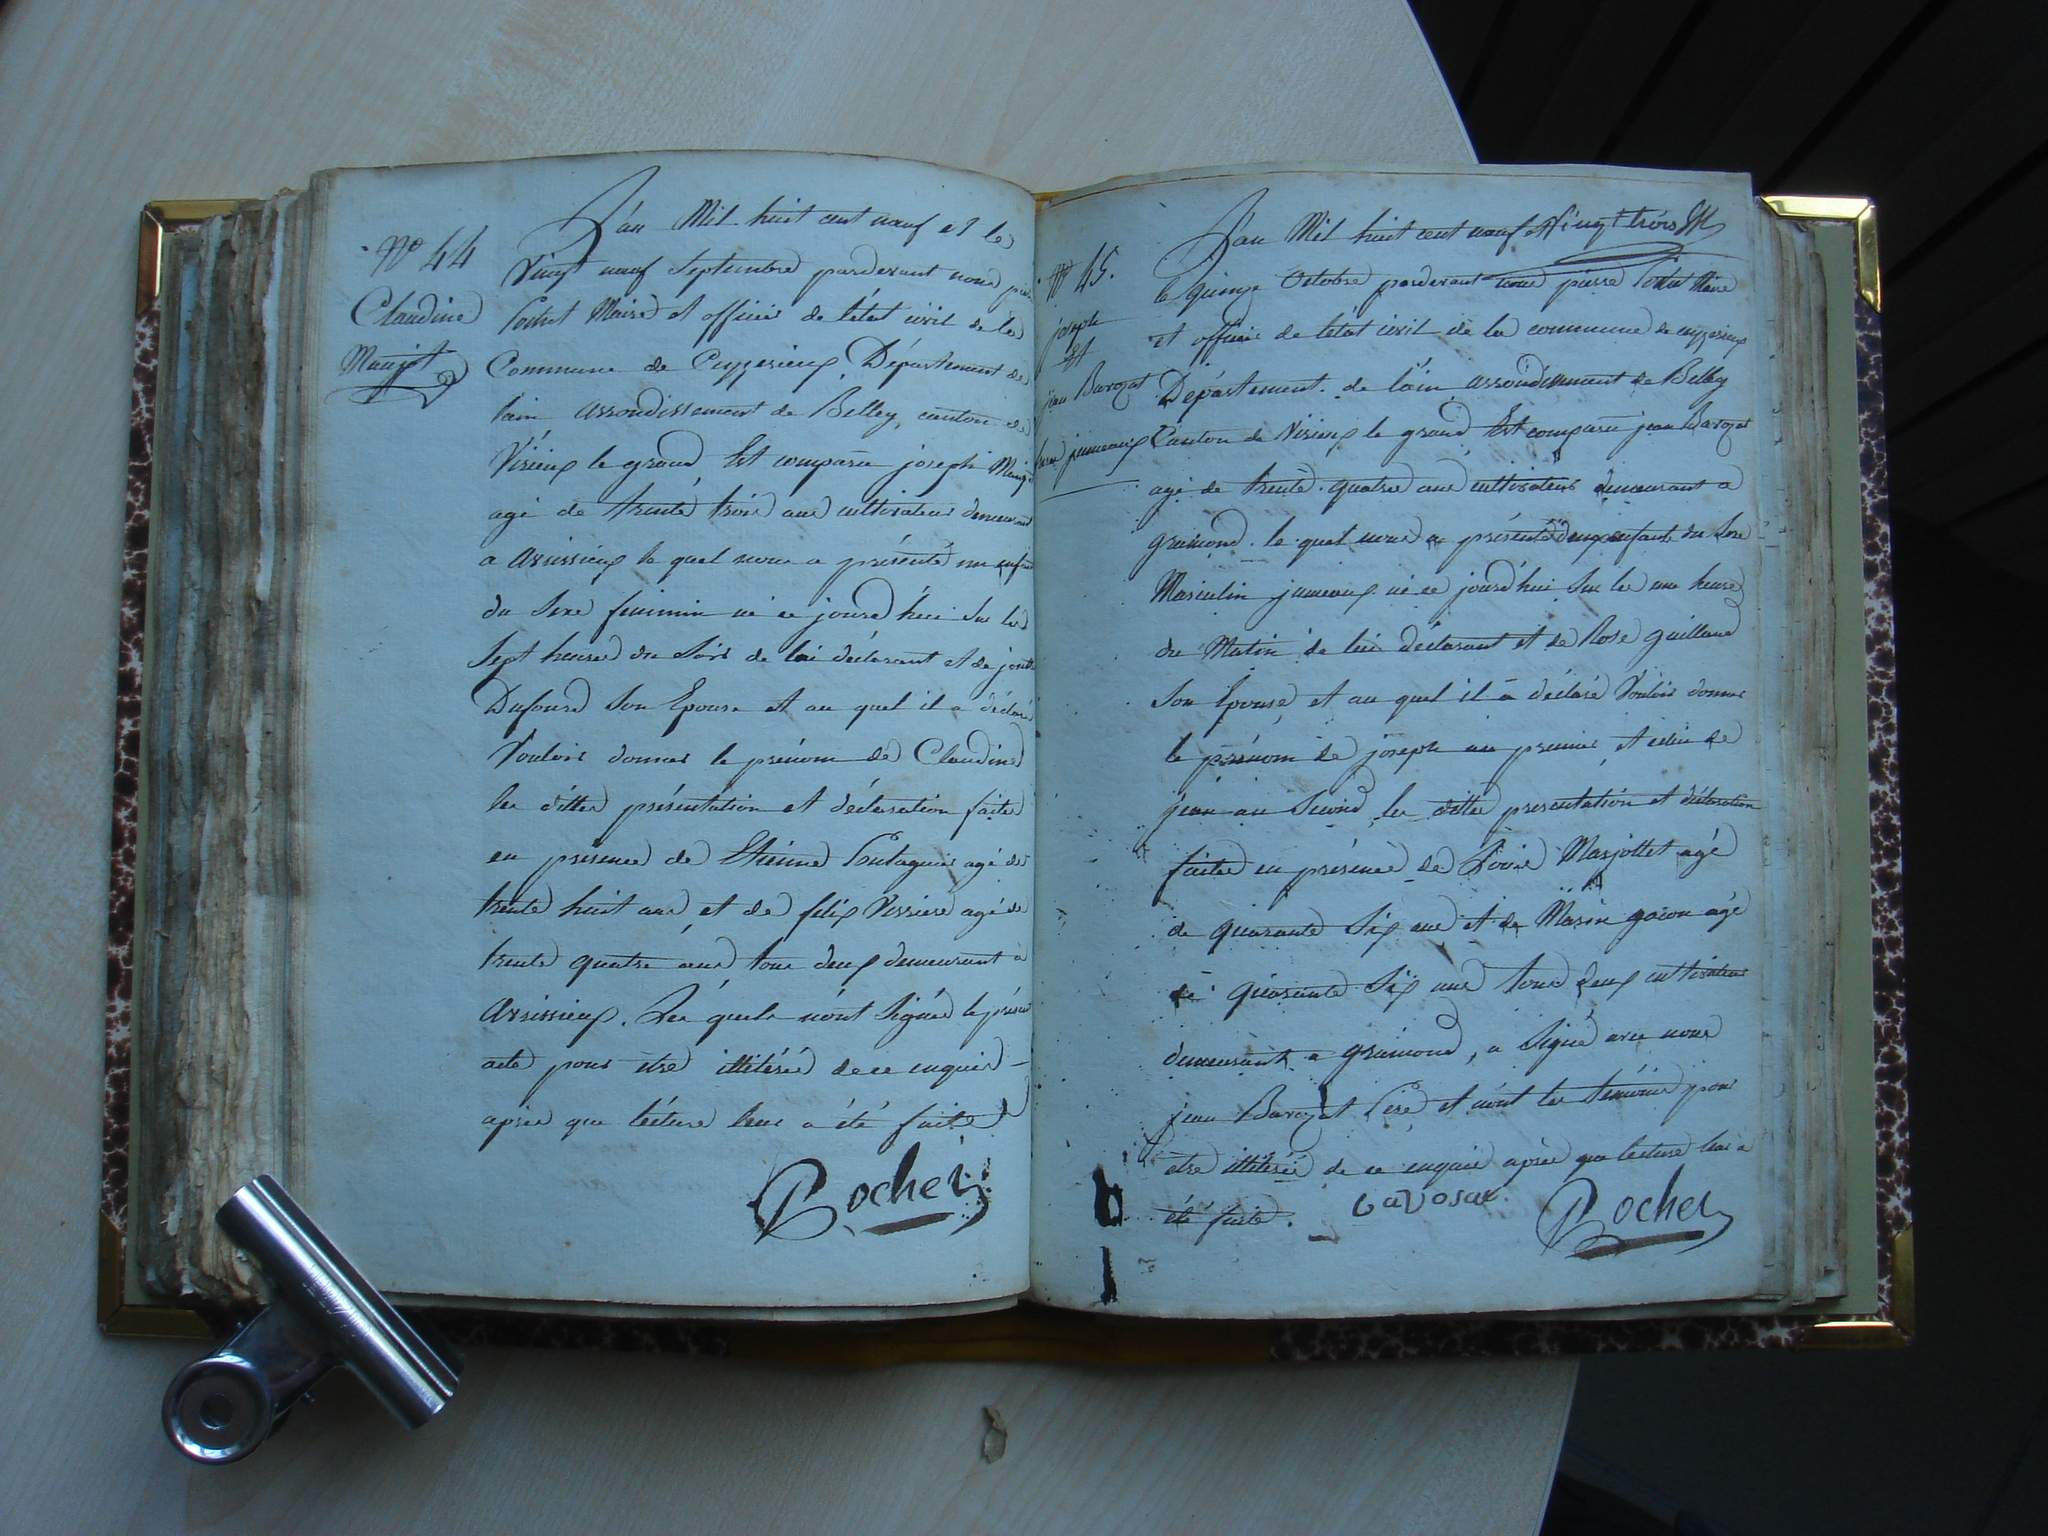 N° 44
Claudine
L'an Mil huit cent neuf et le
Vingt neuf Septembre pardevant nous
Maire et officier de l'état civil de la
Commune de Cuzieux Département de
l'ain arrondissement de Belley, canton de
Virieux le grand Est comparu joseph
agé de trente trois ans cultivateur demeurant
a le quel nous a présenté un enfant
du Sexe feminin né ce jourd'hui Sur les
Sept heures du Soir de lui déclarant et de
Dufour Son Epouse et au quel il a déclaré
Vouloir donner le prénom de Claudine
les dittes présentation et déclaration faites
en présence de Etienne agé de
trente huit ans et de felix Verriere agé de
trente quatre ans tous deux demeurant a
Les quels n'ont Signés le présent
acte pour être illitérés de ce enquis
après que lecture leur a été faite
Pochet
N° 45.
joseph
Et
jean Barozat
jumeaux
L'an Mil huit cent neuf et
le quinze Octobre pardevant nous pierre Pochet Maire
et officier de l'état civil de la commune de
Département de l'ain arrondissement de Belley
Canton de Virieux le grand Est comparu jean Barozat
agé de trente quatre ans cultivateur demeurant a
gramond le quel nous a présenté deux enfants du Sexe
Masculin jumeaux né ce jourd'hui Sur les une heure
du Matin de lui déclarant et de Rose
Son Epouse et au quel il a déclaré Vouloir donner
le prénom de joseph au premier et celui de
jean au Second les dittes presentation et déclaration
faites en présence de Louis Marjollet agé
de quarante Six ans et de Marin agé
de quarante Six ans tous deux cultivateurs
demeurant a gramond, a Signé avec nous
jean Barozat Pere et n'ont les témoins pour
être illitérés de ce enquis après que lecture leur a
été faite.
Pochet